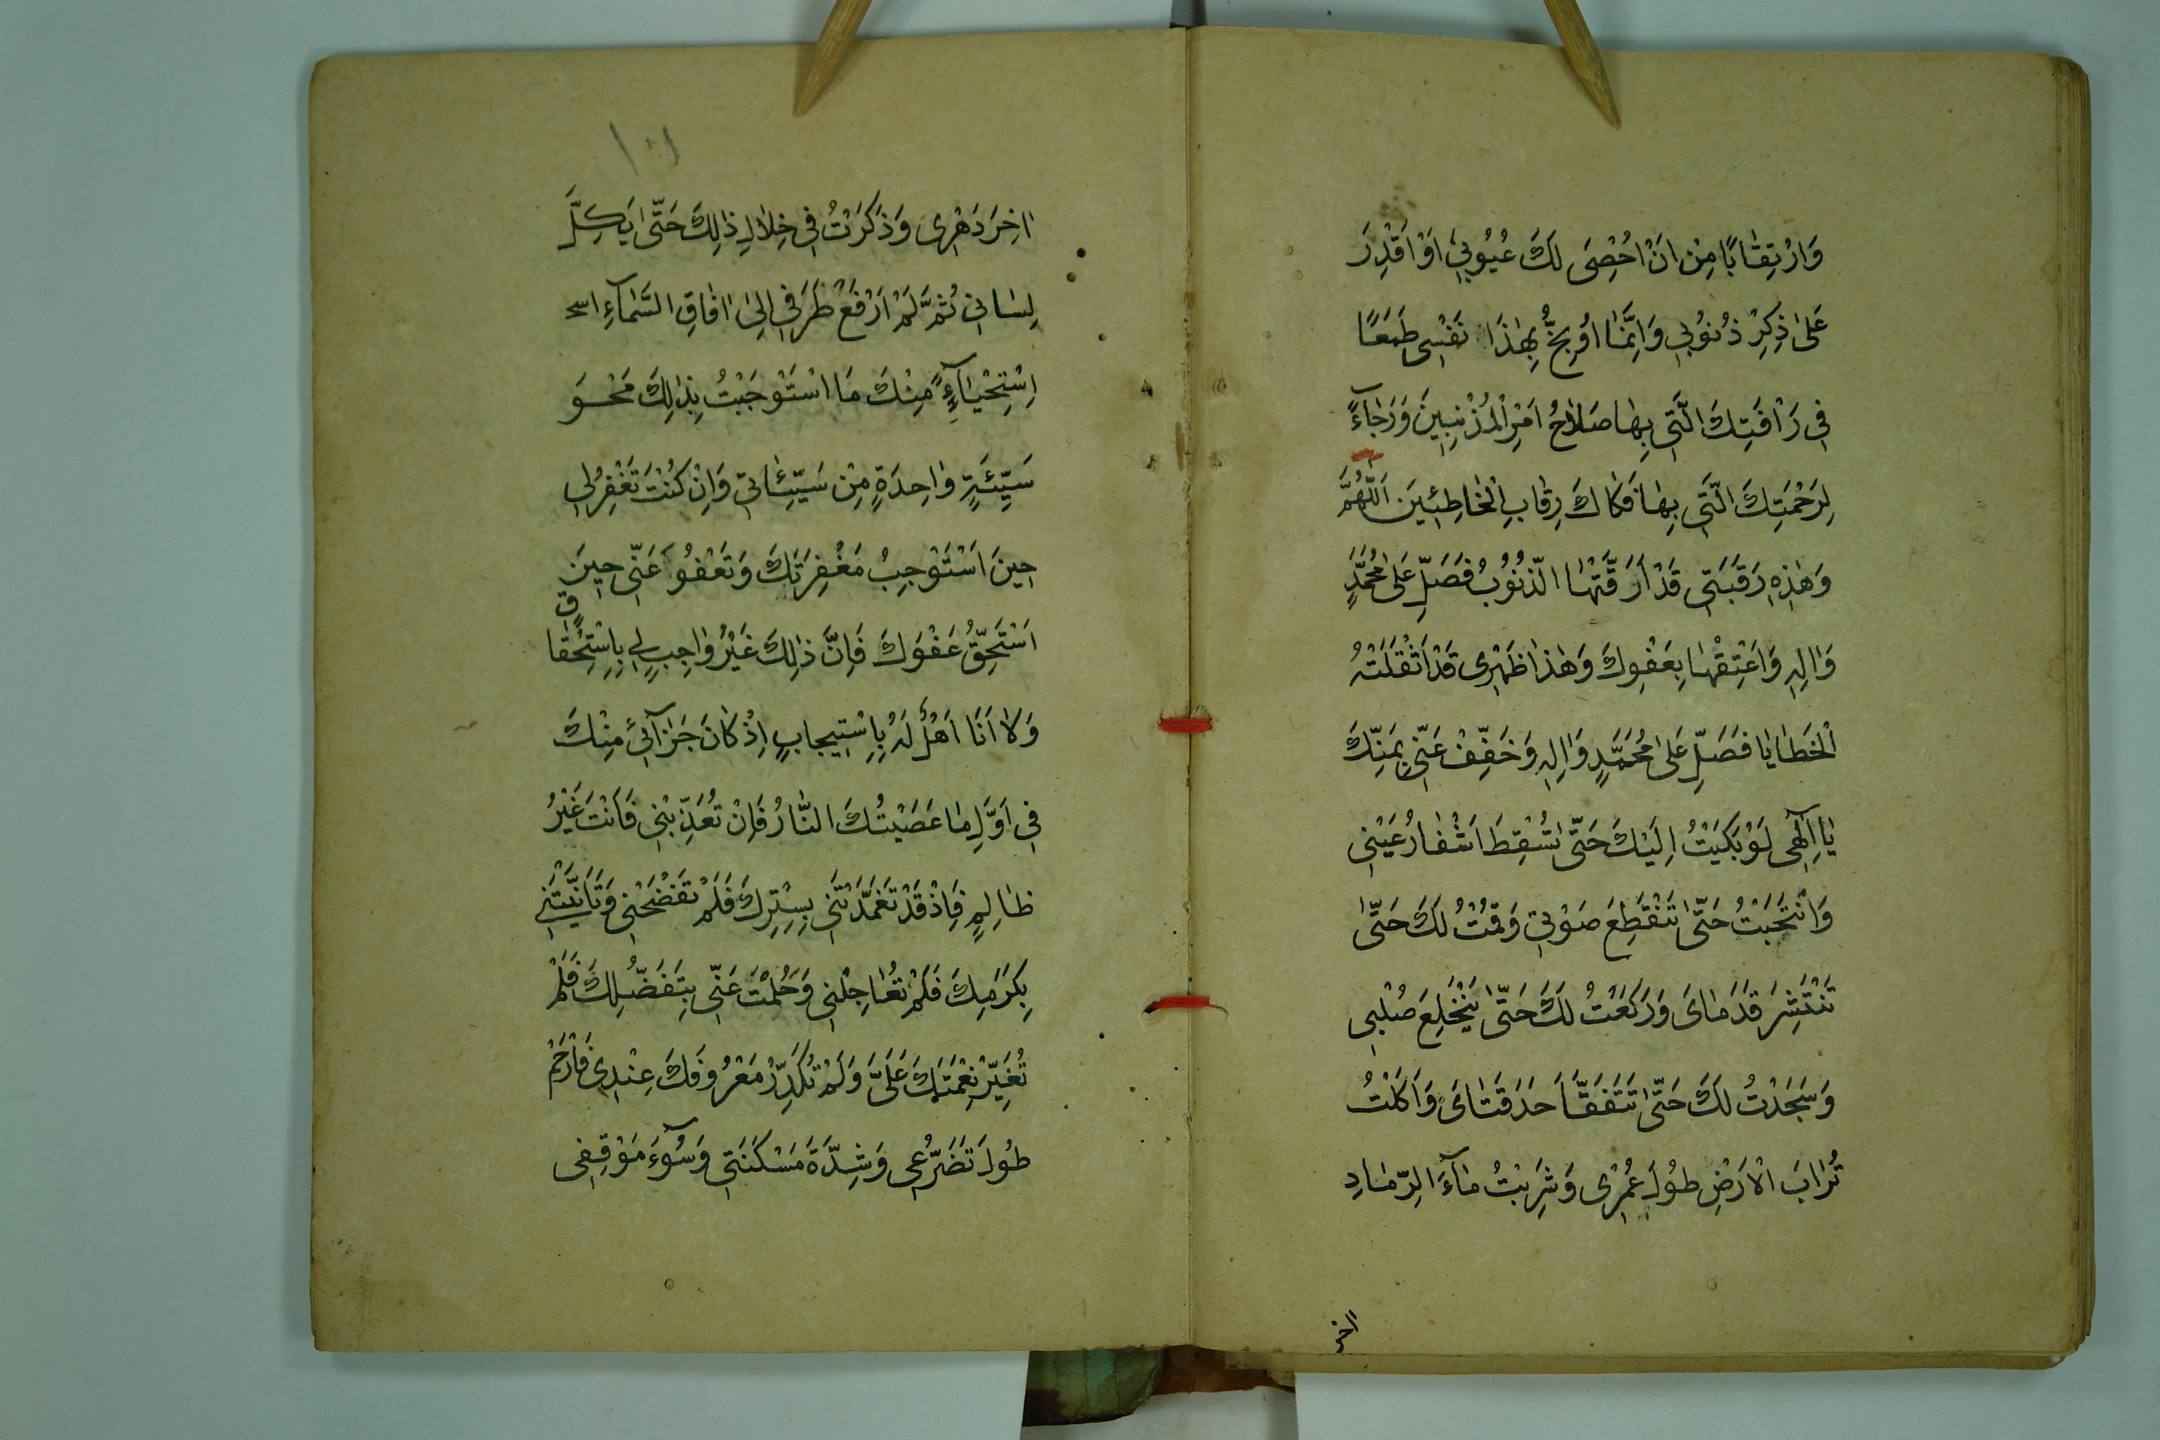 وَارْتِقَابًا مِنْ اَنْ اُحْصِىَ لَكَ عُيُوبِي اَوْ اَقْدِرَ
عَلىٰ ذِكِرْ ذُنوُبِي وَاِنَّمٰا اُوَبِّخُ بِهٰذَا نَفْسِى طَمَعًا
فِي رَاْفَتِكَ الَّتِي بِهٰا صَلاٰحُ اَمْرِ الْمُذْنِبِينَ وَرَجٰاءً
لِرَحْمَتِكَ الَّتِي بِهٰا فَكٰاكَ رِقٰابِ الْخٰاطِئِينَ اَللّٰهُمَّ
وَهٰذِهِ رَقَبَتِي قَدْ اَرَقَّتْهٰا الذُّنُوبُ فَصَلِّ عَلىٰ مُحَمَّدٍ
وَاٰلِهِ وَاَعْتِقْهٰا بِعَفْوِكَ وَهٰذٰا ظَهْرِى قَدْ اَثْقَلَتْهُ
الْخَطٰايٰا فَصَلِّ عَلىٰ مُحَمَّدٍ وَاٰلِهِ وَخَفِّفْ عَنّىِ بِمَنِّكَ
يٰا اِلٰهِى لَوْ بَكَيْتُ اِلَيْكَ حَتّىٰ تُسْقِطَ اَشْفٰارُ عَيْنِي
وَانْتَحَبْتُ حَتّىٰ تَنْقَطِعَ صَوْتِي وَقُمْتُ لَكَ حَتّىٰ
تَنْتَشِرَ قَدَمٰاىَ وَرَكَعْتُ لَكَ حَتّىٰ يَنْخَلِعَ صُلْبِي
وَسَجَدْتُ لَكَ حَتّىٰ تَتَفَقَّاَ حَدَقَتٰاىَ وَاَكَلْتُ
تُرٰابَ الْاَرْضِ طُولَ عُمْرِى وَشَرِبْتُ مٰاءَ الرِّمٰادِ
اٰخر
اٰخِرَ دَهْرِى وَذَكَرْتُ فِي خِلاٰلِ ذٰلِكَ حَتّىٰ يَكِلَّ
لِسٰانِي ثُمَّ لَمْ اَرْفَعْ طَرَفِي اِلىٰ اٰفٰاقِ السَّمٰاءِ اسح
اِسْتِحْيٰاءً مِنْكَ مَا اسْتَوْجَبْتُ بِذٰلِكَ مَحْوَ
سَيِّئَةٍ وٰاحِدَةٍ مِنْ سَيِّئٰاتِي وَاِنْ كُنْتَ تَغْفِرُلِي
حِينَ اَسْتَوْجِبُ مَغْفِرَتَكَ وَتَعْفُو عَنّىِ حِينَ
اَسْتَحِقُّ عَفْوَكَ فَاِنَّ ذٰلِكَ غَيْرُ وٰاجِبٍ لِي بِاِسْتِحْقٰاقٍ
وَلاٰ اَنَا اَهْلٌ لَهُ بِاِسْتِيجابٍ اِذْ كٰانَ جَزٰائِي مِنْكَ
فِي اَوَّلِ مٰا عَصَيْتُكَ النّٰارُ فَاِنْ تُعَذِّبْنِي فَاَنْتَ غَيْرُ
ظٰالِمٍ فَاِذْ قَدْ تَغَمَّدْتَنِي بِسِتْرِكَ فَلَمْ تَفْضَحْنِي وَتَاَنَّيْتَنِي
بِكَرَمِكَ فَلَمْ تُعٰاجِلْنِي وَحَلُمْتَ عَنّىِ بِتَفَضُّلِكَ فَلَمْ
تُغَيِّرْ نِعْمَتَكَ عَلَىَّ وَلَمْ تُكَدِّرْ مَعْرُوفَكَ عِنْدِي فَارْحَمْ
طُولَ تَضَرُّعِي وَشِدَّةَ مَسْكَنَتِي وَسُوءَ مَوْقِفِي